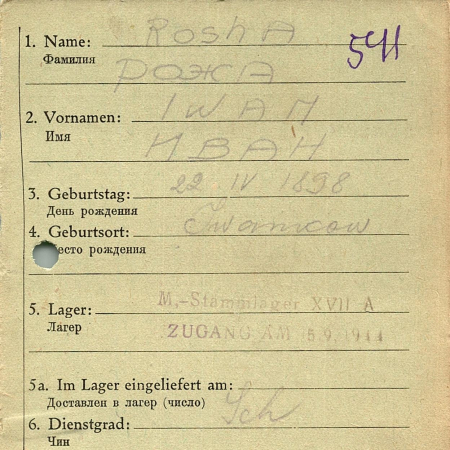 1. Name: Rosha
Фамилия
РОЖА
541
2. Vornamen: IWAN
Имя
ИВАН
3. Geburtstag: 22 IV 1898
День рождения
4. Geburtsort: Iwancow
есто рождения
5. Lager: M.-Stammlager XVII A
Лагер ZUGANG AM 15.9.1944
5a. Im Lager eingeliefert am:
Доставлен в лагер (число)
6. Dienstgrad: Sch
Чин